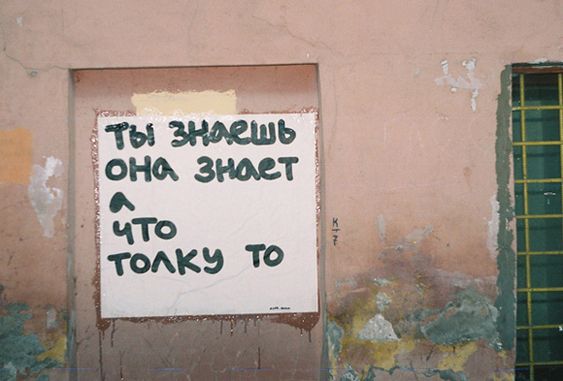 ты знаешь
она знает
а
что
толку то
К
7